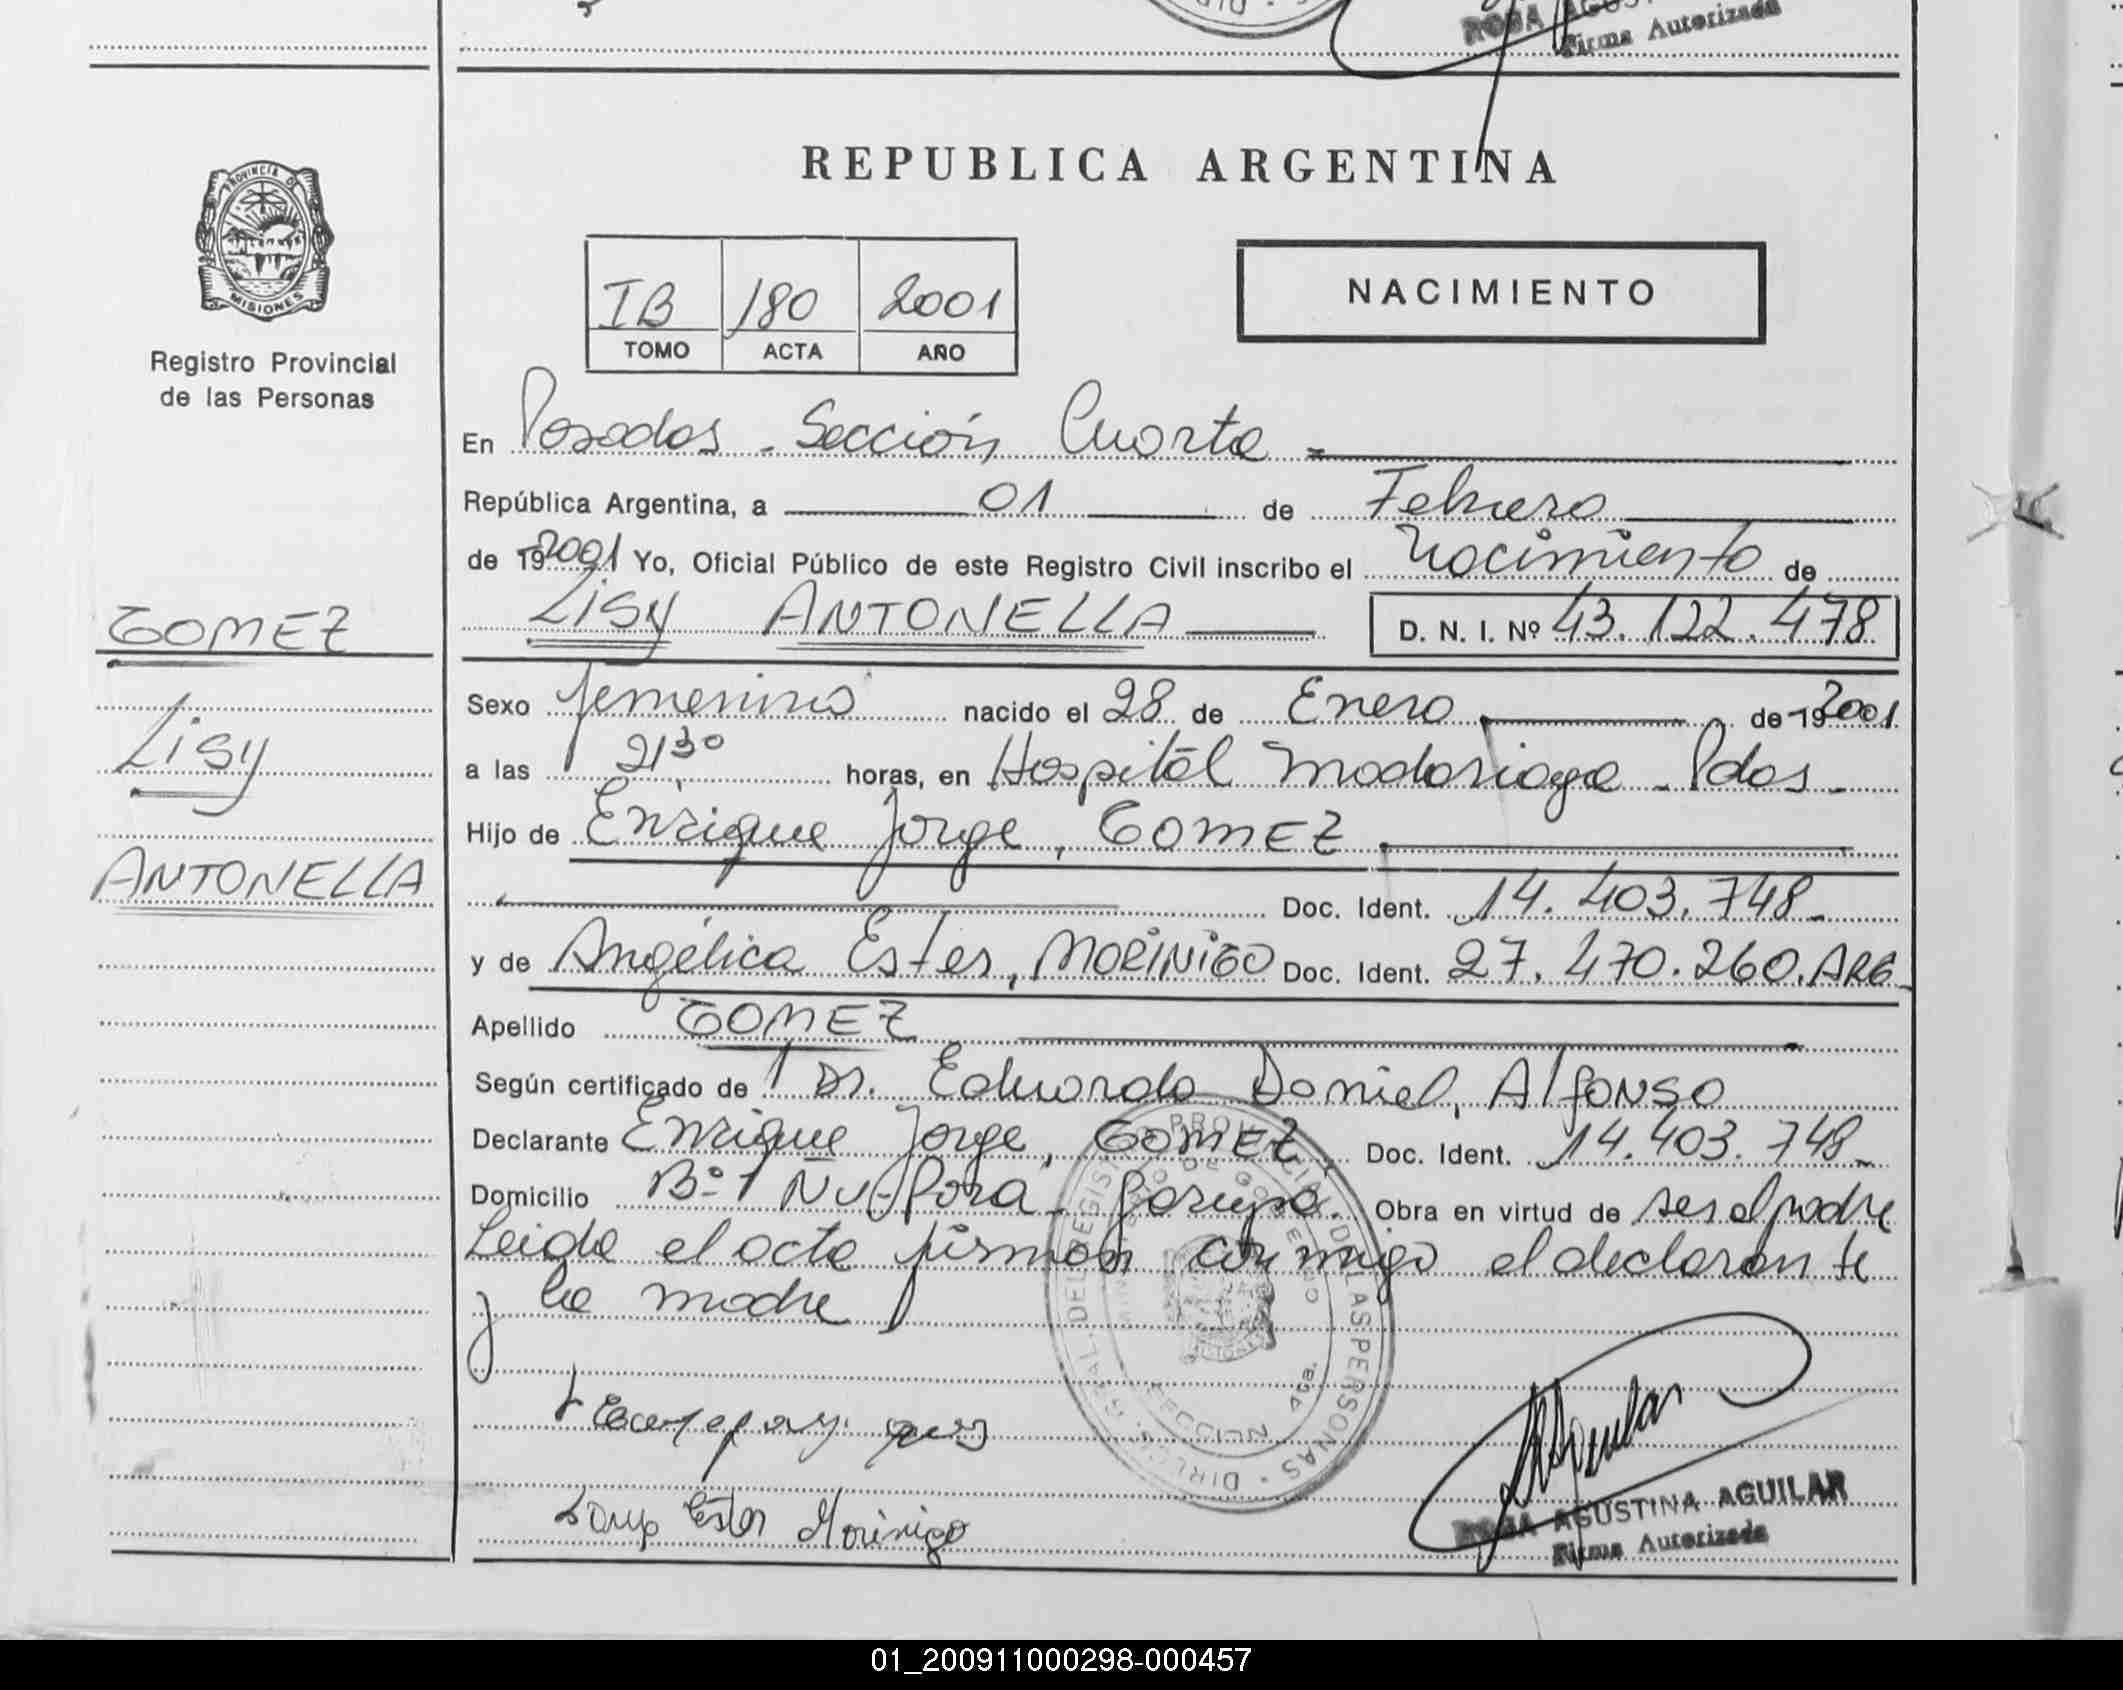 ROSA AGUS
Firma Autorizada
PROVINCIA DE
MISIONES
Registro Provincial
de las Personas
GOMEZ
Lisy
ANTONELLA
REPUBLICA ARGENTINA
IB 180 2001
TOMO ACTA AÑO
NACIMIENTO
En Posadas - Sección Cuarta
República Argentina, a 01 de Febrero
de 19 2001 Yo, Oficial Público de este Registro Civil inscribo el Nacimiento de
Lisy ANTONELLA D. N. I. Nº 43.122.478
Sexo femenino nacido el 28 de Enero de 19 2001
a las 21:30 horas, en Hospital Madariaga - Pdas -
Hijo de Enrique Jorge, GOMEZ
Doc. Ident. 14.403.748-
y de Angélica Ester, MORINIGO Doc. Ident. 27.470.260.ARG-
Apellido GOMEZ
Según certificado de Dr. Eduardo Daniel, Alfonso
Declarante Enrique Jorge, GOMEZ. Doc. Ident. 14.403.748-
Domicilio Bº Ñu-Pora - Garupá. Obra en virtud de ser el padre
Leida el acta firman conmigo el declarante
y la madre
Ester Morinigo
REGISTRO PROVINCIAL DE LAS PERSONAS
SECCION 4ta.
ROSA AGUSTINA AGUILAR
Firma Autorizada
01_200911000298-000457